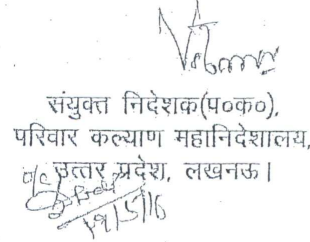 संयुक्त निदेशक(प०क०),
परिवार कल्याण महानिदेशालय,
उत्तर प्रदेश, लखनऊ।